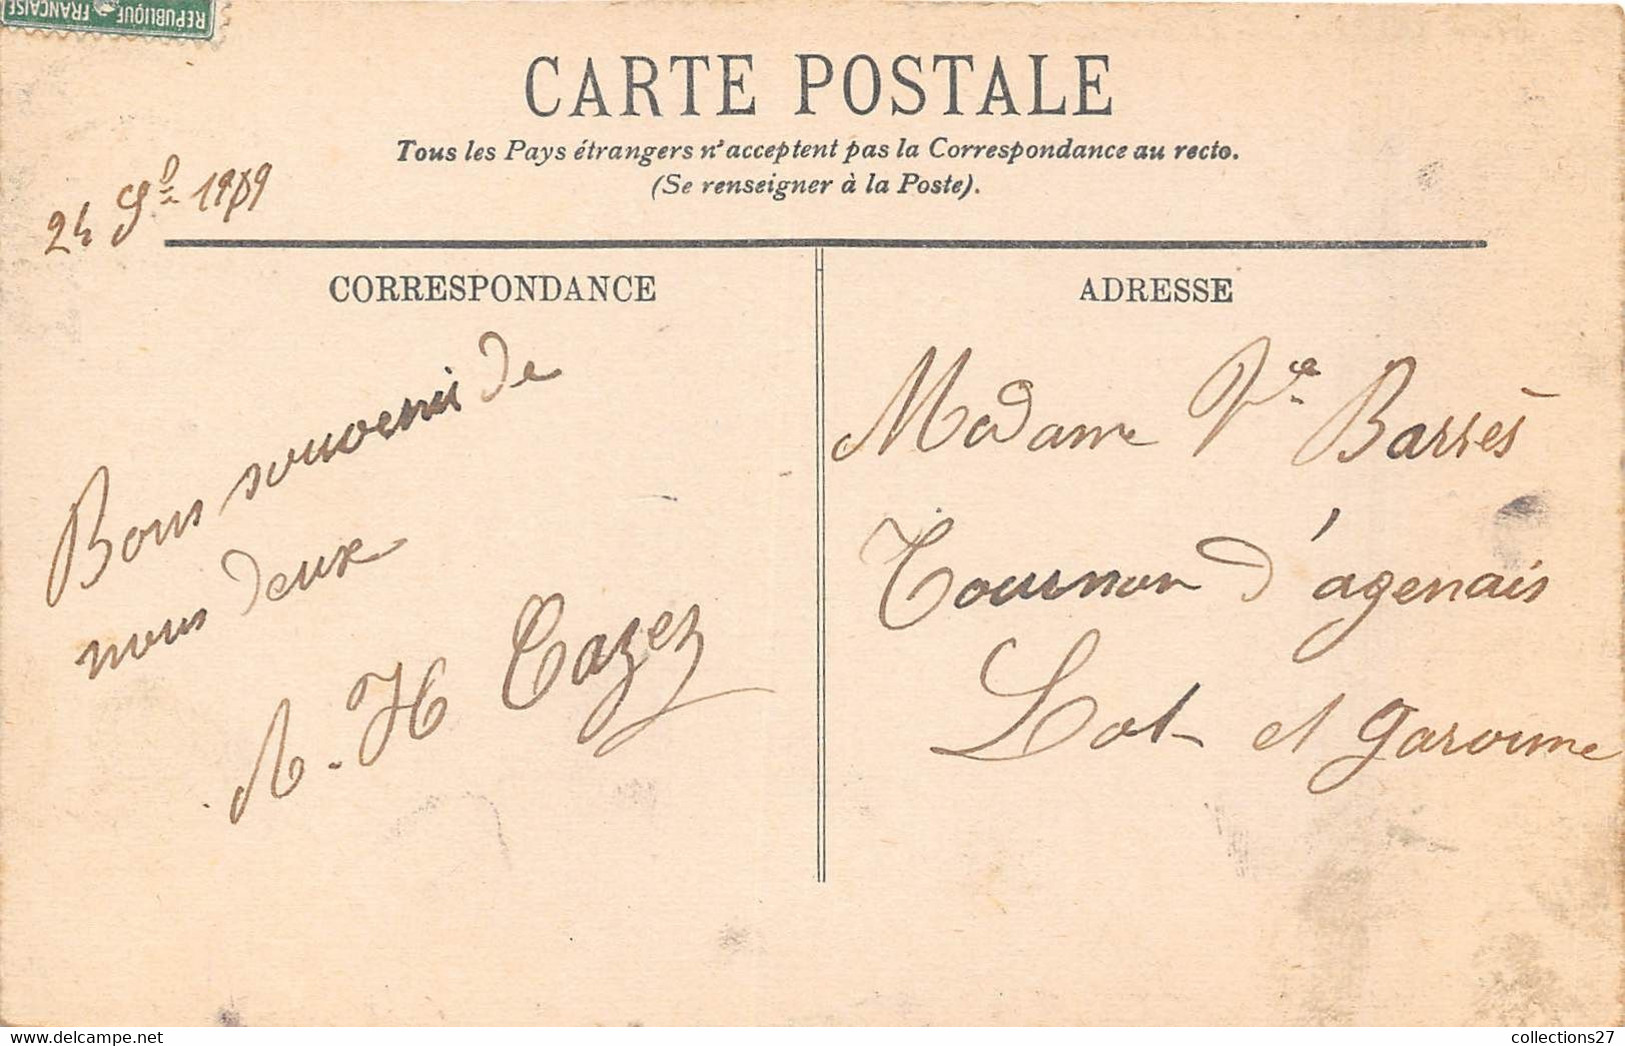 RÉPUBLIQUE FRANÇAISE
CARTE POSTALE
Tous les Pays étrangers n'acceptent pas la Correspondance au recto.
(Se renseigner à la Poste).
24 1909
CORRESPONDANCE
Bons souvenir de
nous deux
A. H Cazes
ADRESSE
Madame Vve Barrès
Tournon d'agenais
Lot et Garonne
collections27